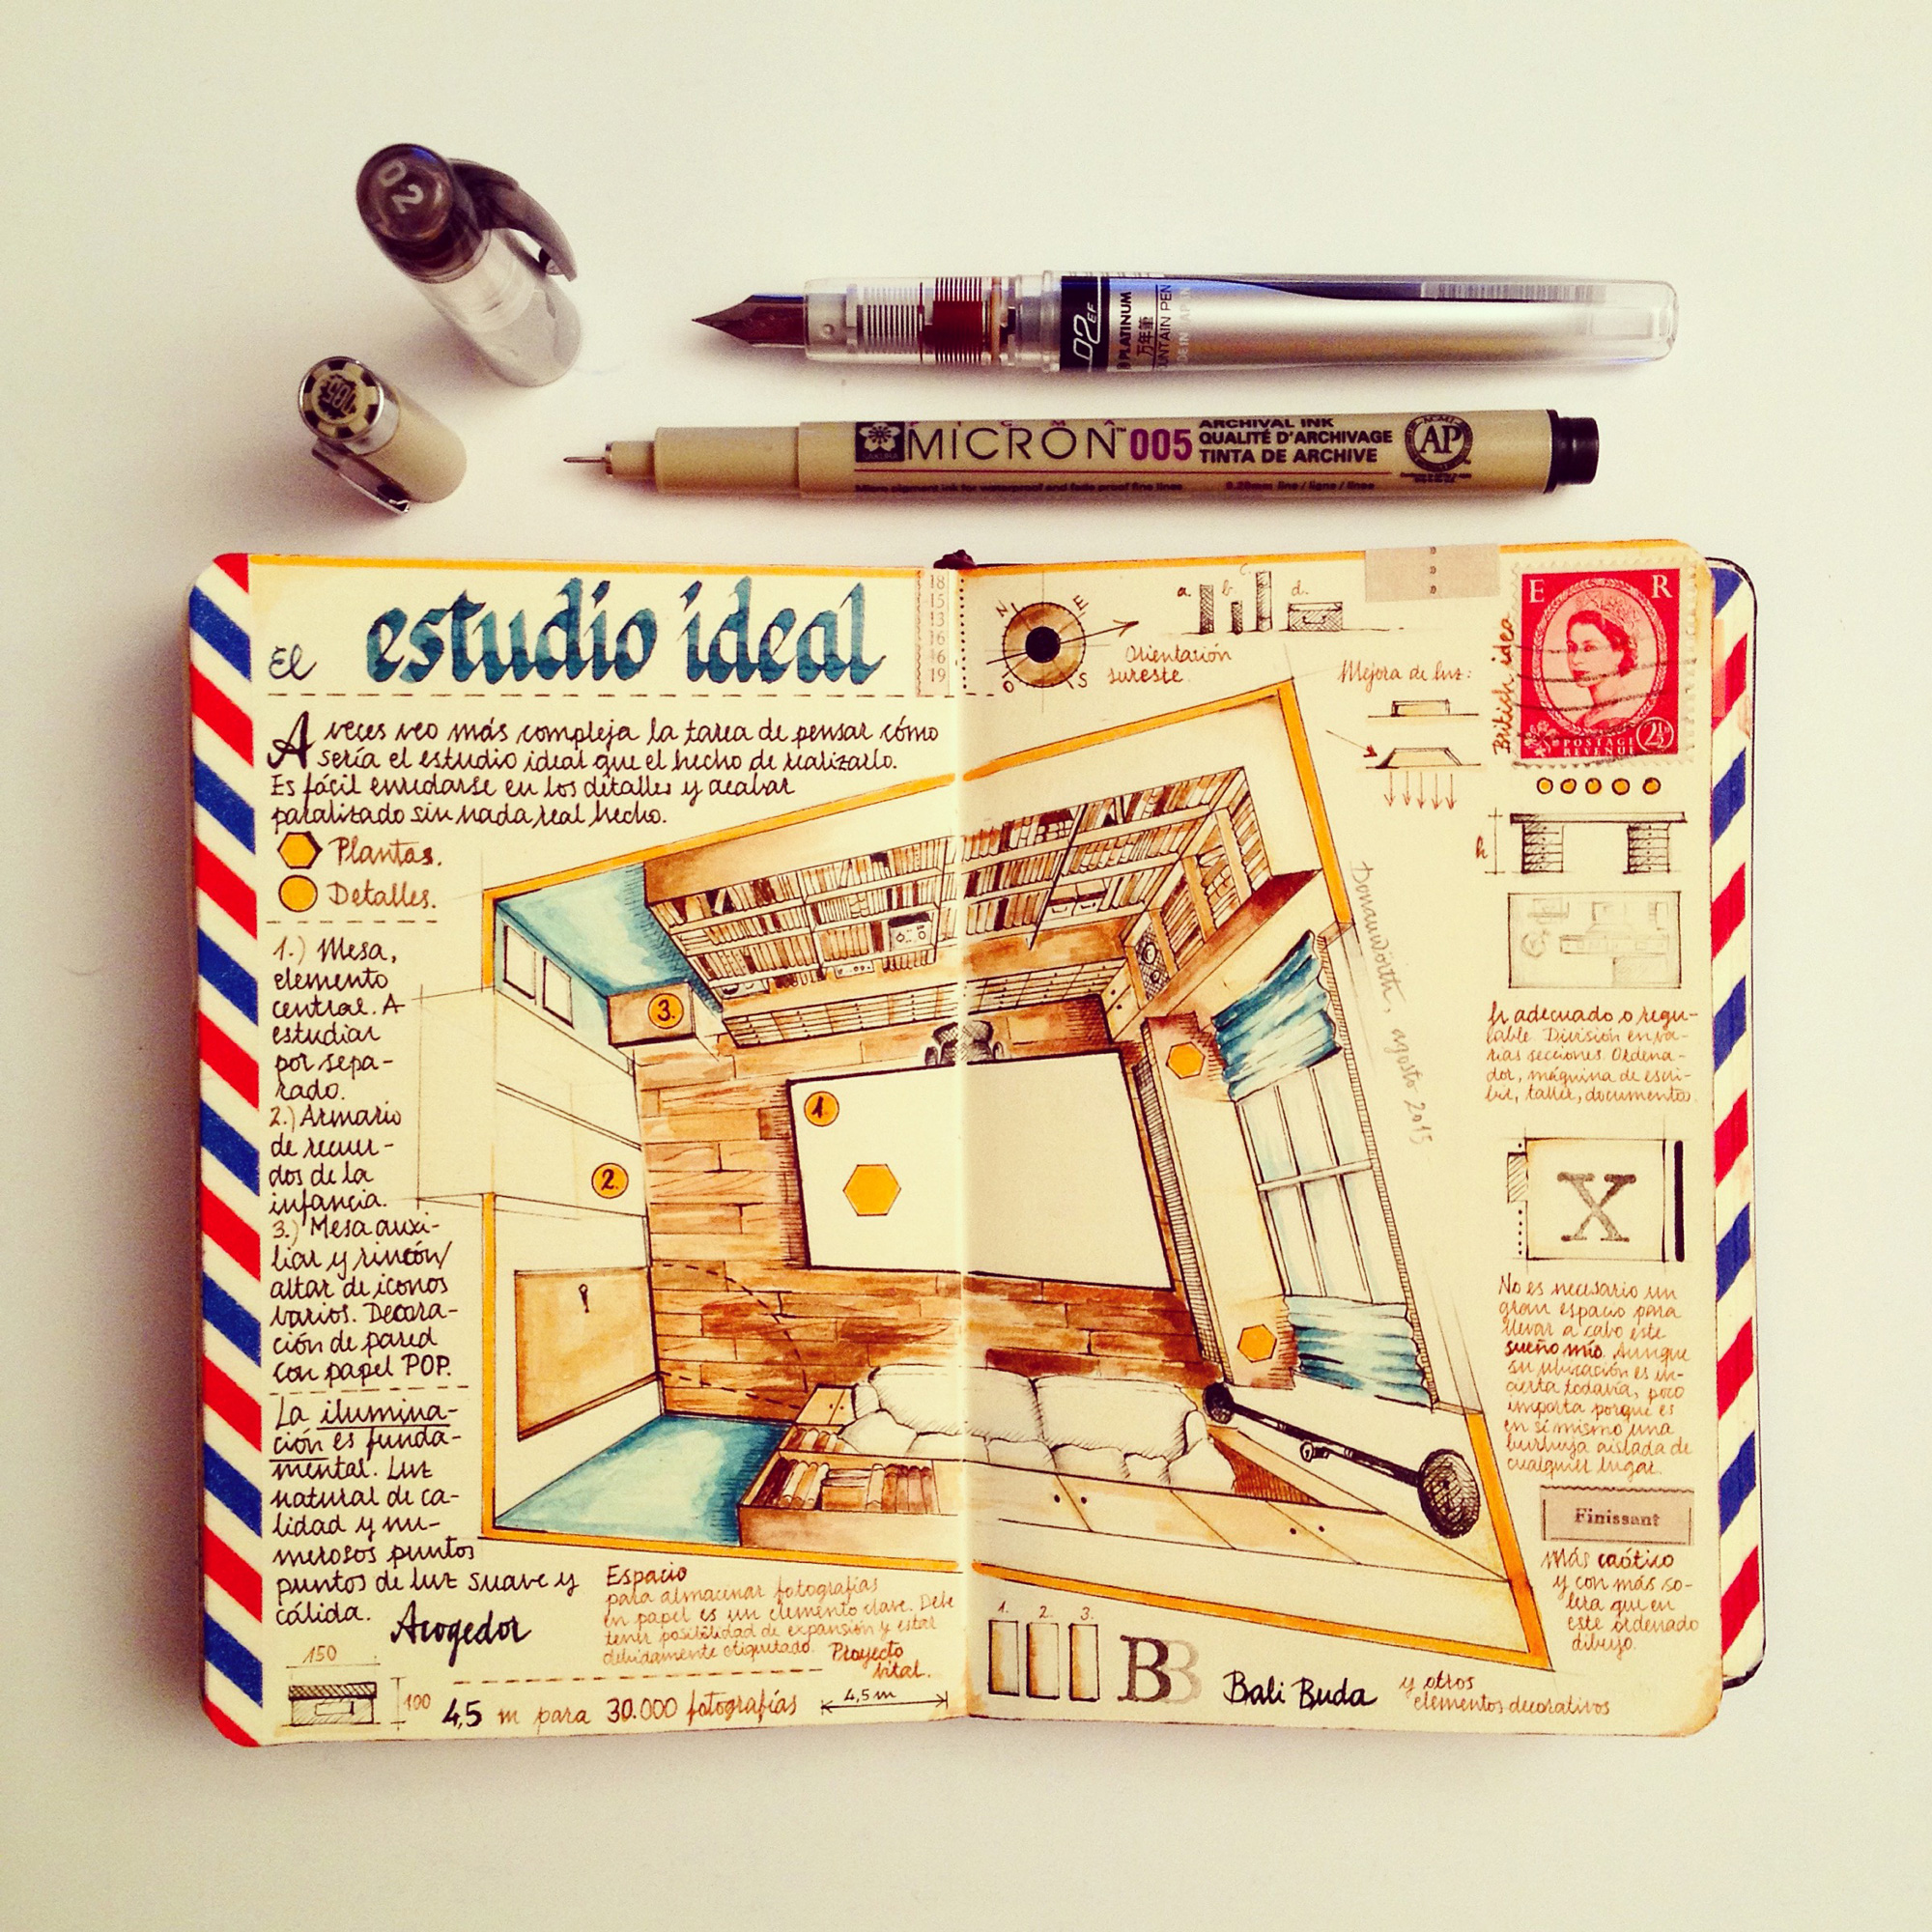 02
005
02 EF
PLATINUM
万年筆
FOUNTAIN PEN
PIGMA
SAKURA
MICRON™ 005
ARCHIVAL INK
QUALITÉ D'ARCHIVAGE
TINTA DE ARCHIVE
AP
Micro pigment ink for waterproof and fade proof fine lines
0.20mm line / ligne / línea
El estudio ideal
18
15
13
16
16
19
A veces veo más compleja la tarea de pensar cómo
sería el estudio ideal que el hecho de realizarlo.
Es fácil enredarse en los detalles y acabar
paralizado sin nada real hecho.
Plantas.
Detalles.
1.) Mesa,
elemento
central. A
estudiar
por sepa-
rado.
2.) Armario
de recuer-
dos de la
infancia.
3.) Mesa auxi-
liar y rincón/
altar de iconos
varios. Decora-
ción de pared
con papel POP.
La ilumina-
ción es funda-
mental. Luz
natural de ca-
lidad y nu-
merosos puntos
puntos de luz suave y
cálida.
Acogedor
150
100
Espacio
para almacenar fotografías
en papel es un elemento clave. Debe
tener posibilidad de expansión y estar
debidamente etiquetado. Proyecto
vital.
4,5 m para 30.000 fotografías
4,5 m
3.
1.
2.
N
E
O
S
Orientación
sureste.
a.
b.
c.
d.
Mejora de luz:
British idea
E R
POSTAGE
REVENUE
2½
h
Donauwörth, agosto 2015
h adecuado o regu-
lable. División en va-
rias secciones. Ordena-
dor, máquina de escri-
bir, taller, documentos.
X
No es necesario un
gran espacio para
llevar a cabo este
sueño mío. Aunque
su ubicación es in-
cierta todavía, poco
importa porque es
en sí mismo una
burbuja aislada de
cualquier lugar.
Finissant
Más caótico
y con más so-
lera que en
este ordenado
dibujo.
1. 2. 3.
BB
Bali Buda
y otros
elementos decorativos